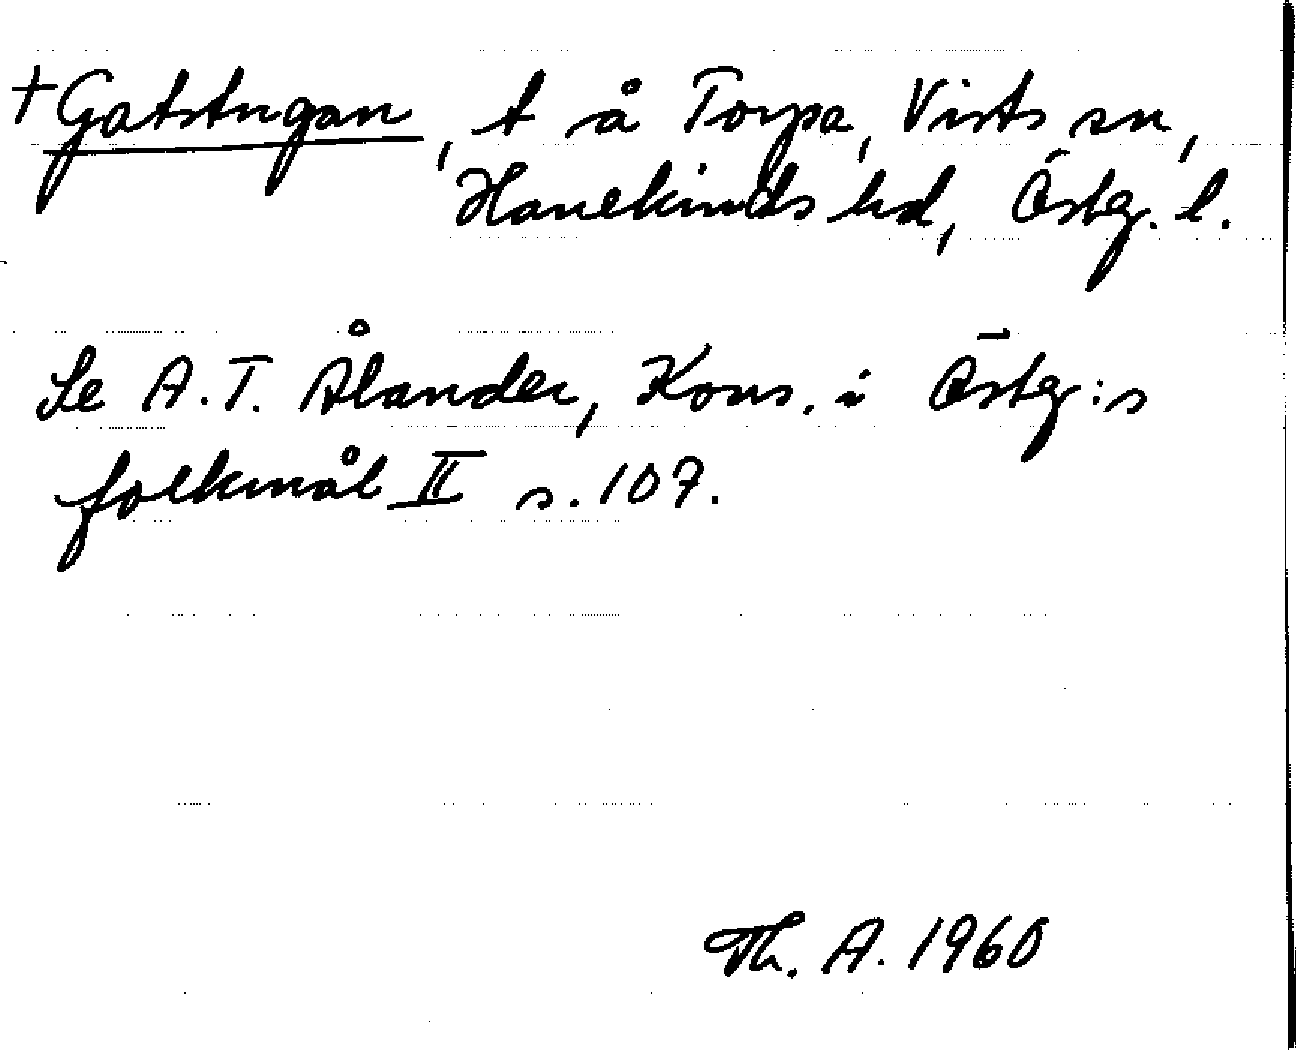 +Gatstugan, t å Torpa, Vists sn,
Hanekinds hd, Östg. l.
Se A.T. Ålander, Kons. i Östg:s
folkmål II s. 107.
Th. A. 1960